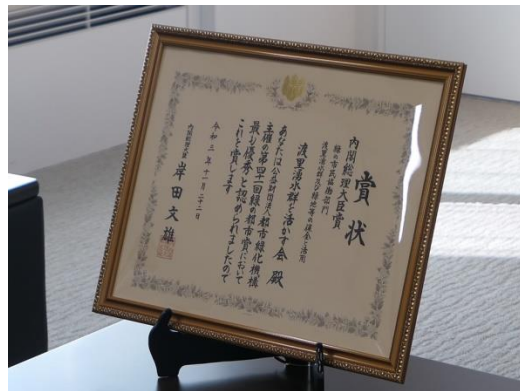 賞状
内閣総理大臣賞
緑の市民協働部門
渡里湧水群及び緑地等の保全と活用
渡里湧水群を活かす会 殿
あなたは公益財団法人都市緑化機構
主催の第四十一回緑の都市賞において
最も優秀と認められましたので
これを賞します
令和三年十一月二十二日
内閣総理大臣 岸田文雄